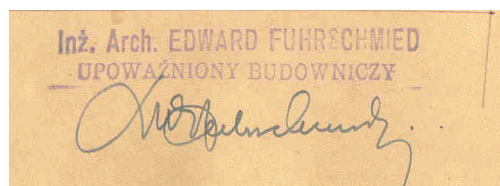 Inż. Arch. EDWARD FUHRSCHMIED
UPOWAŻNIONY BUDOWNICZY